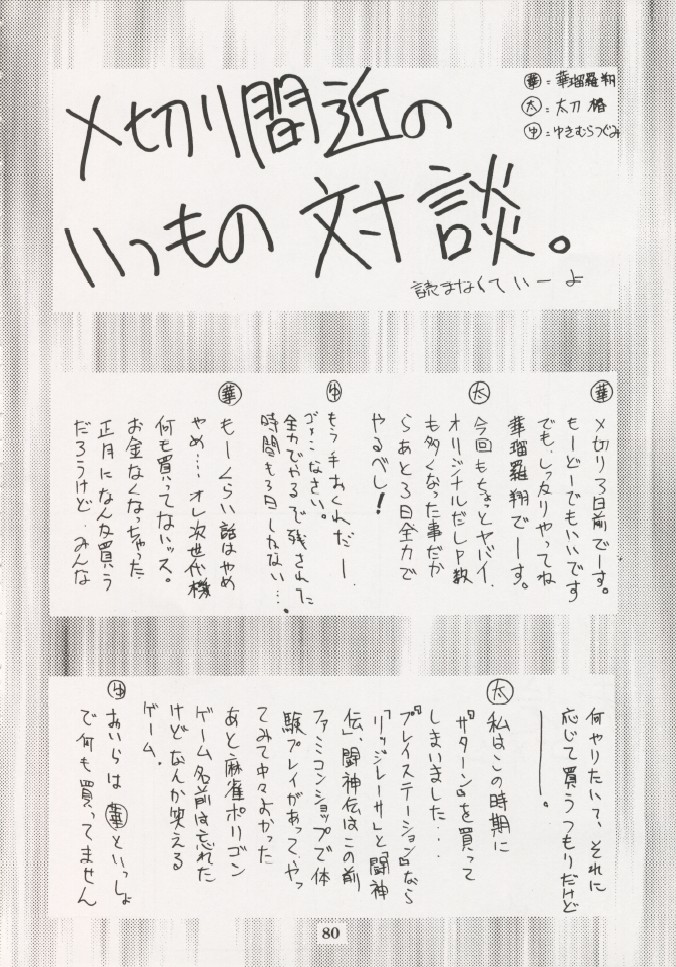 〆切り間近の
いつもの対談。
読まなくていーよ
華=華瑠羅翔
太=太刀椿
ゆ=ゆきむらつぐみ
華 〆切り3日前でーす。
もーどーでもいいです
でも、しっかりやってね
華瑠羅翔でーす。
太 今回もちょっとヤバイ、
オリジナルだしP数
も多くなった事だか
らあと3日全力で
やるべし!
ゆ もう手おくれだー、
ゴメンなさい。
全力でやるで残された
時間も3日しかない…。
華 もーくらい話はやめ
やめ…オレ次世代機
何も買ってないッス。
お金なくなっちゃった
正月になんか買う
だろうけど、みんな
何やりたいて、それに
応じて買うつもりだけど
――。
太 私はこの時期に
『サターン』を買って
しまいました…
『プレイステーション』なら
『リッジレーサ』と闘神
伝」、闘神伝はこの前
ファミコンショップで体
験プレイがあって、やっ
てみて中々よかった
あと麻雀ポリゴン
ゲーム名前は忘れた
けどなんか笑える
ゲーム。
ゆ おいらは華といっしょ
で何も買ってません
80